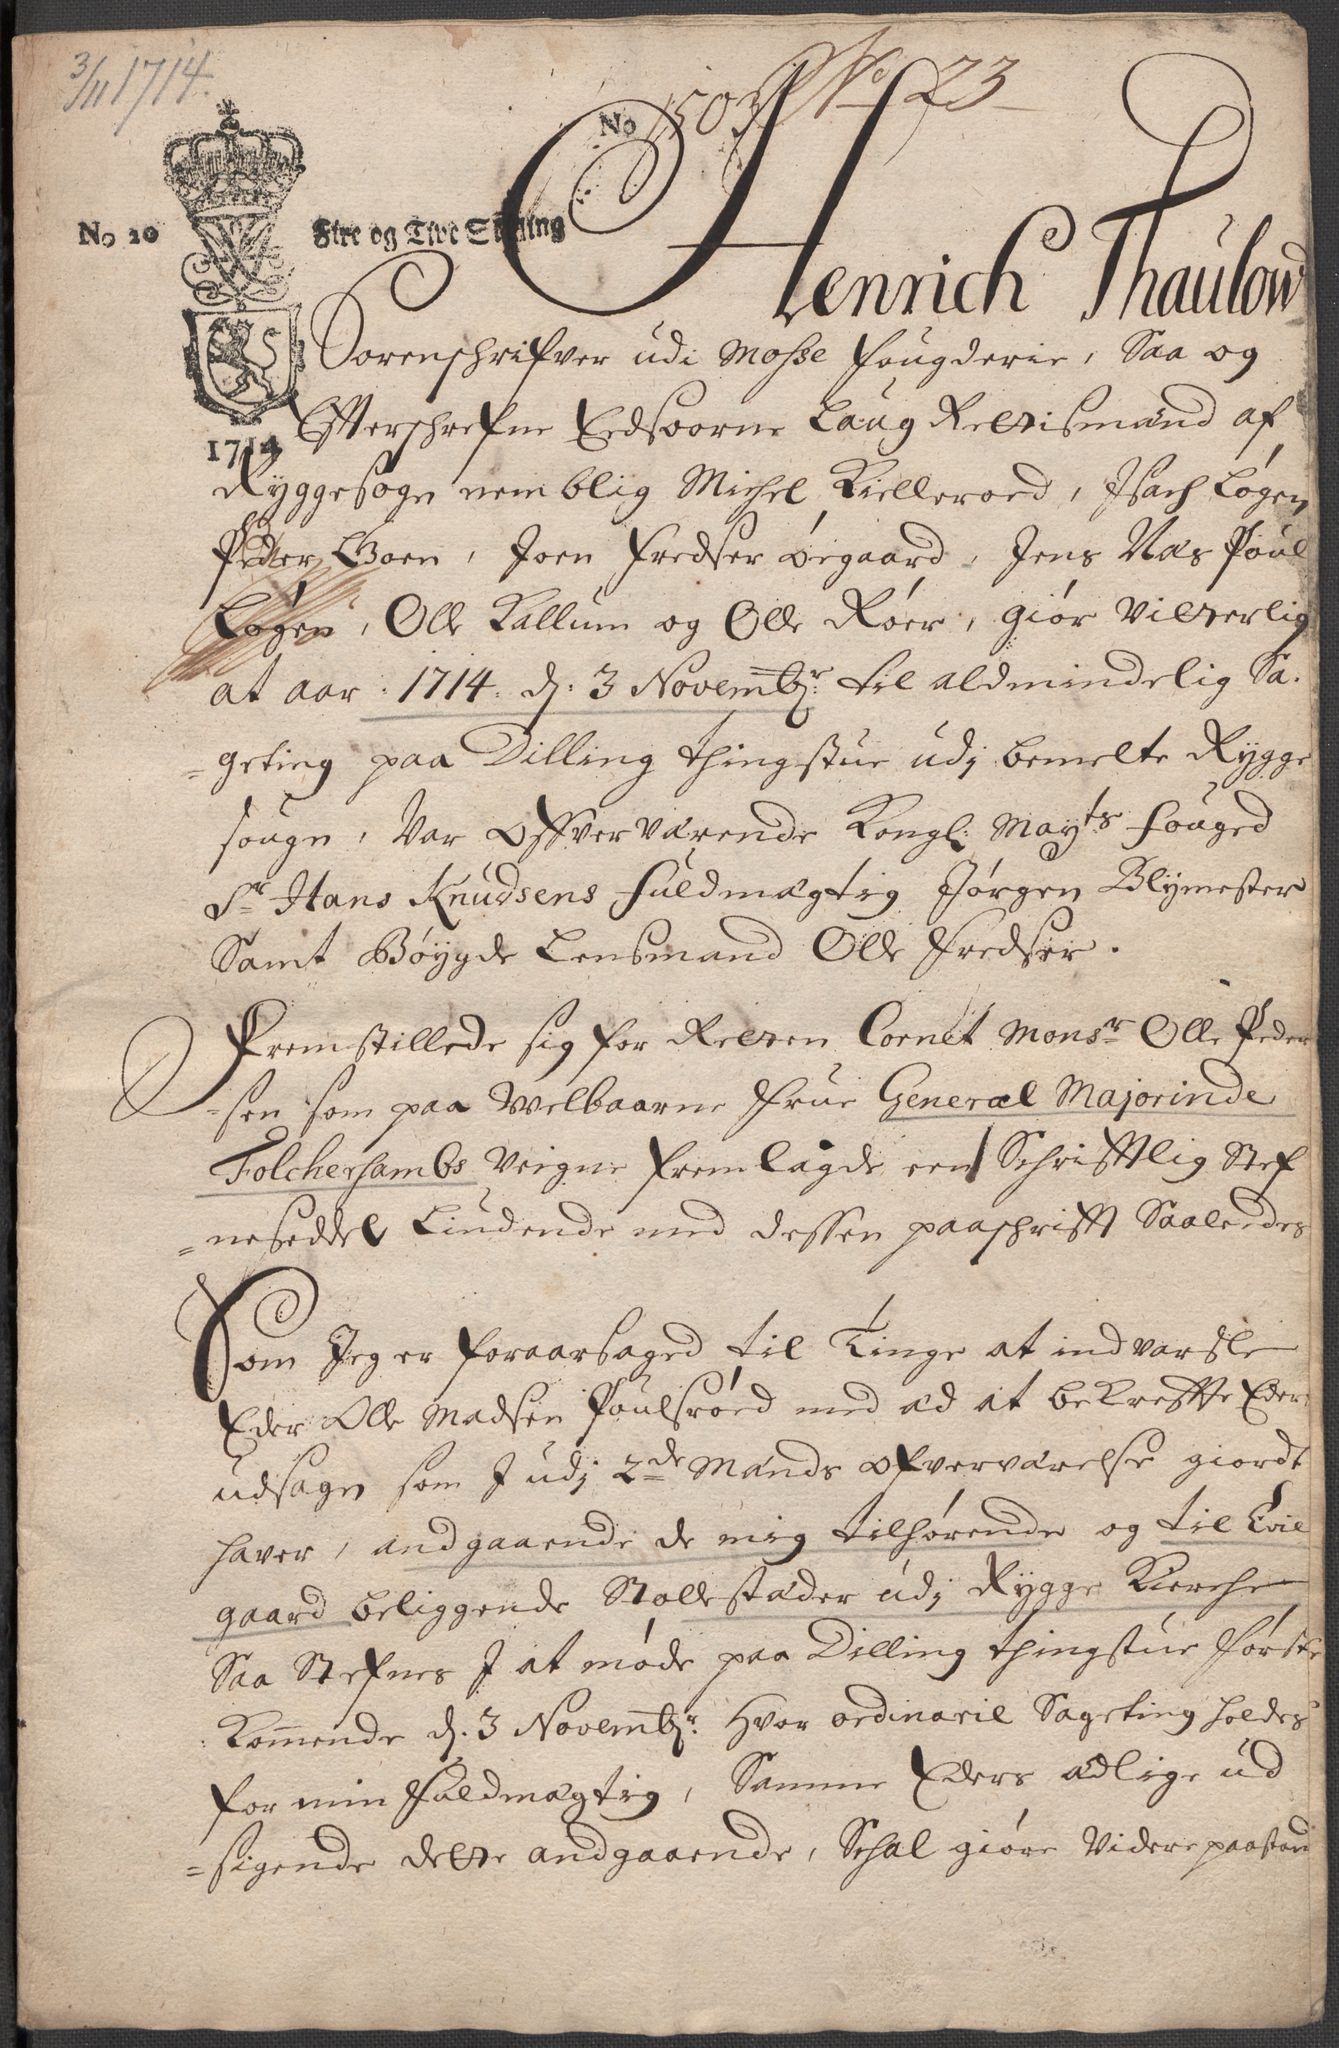 3/11 1714.
No 1503 No 23
No 20 Fire og Tive Skilling
Henrich Thaulow
Sorenschrifver udi Mosse fougderie, Saa og
1714
Efterschrefne Eedsoorne Laug Rettismænd af
Ryggesogn nemblig Michel Kielleroed, Isach Løgen
Peder Boen, Joen Fredser Øegaard, Jens Næs Poul
Løgen, Olle Kallum og Olle Røer, giør Vitterlig
at aar 1714. d: 3 Novembr: til aldmindelig Sa-
=geting paa Dilling thingstue udj bemelte Rygge
sougn, Var Offverværende Kongl: Mayts fouged
Sr Hans Knudsens fuldmægtig Jørgen Blymester
Samt Bøygde Lensmand Olle Fredser.
Fremstillede sig for Retten Cornet Monsr Olle Peder
=sen som paa Welbaarne Frue General Majorinde
Folchersambs Veigne fremlagde een Schriftlig Stef
=neseddel Liudende med dessen paaschrifft Saaledes
Som Jeg er foraarsaged til Tinge at indvarsle
Eder Olle Madsen Poulsrøed med æd at bekreffte Eders
udsagn som J udj 2de Mænds ofverværelse giordt
haver, andgaaende de mig tilhørende og til Evie
gaard beliggende Stollestader udj Rygge Kierche
Saa Stefnes J at møde paa Dilling thingstue først
kommende d. 3 Novembr: Hvor ordinarie Sageting holdes
for min Fuldmægtig, Samme Eders ædlige ud
=sigende dette andgaaende, Schal giøre Videre paastand